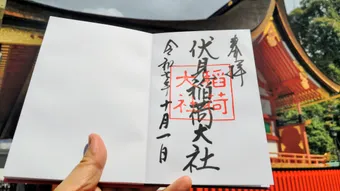 奉拝
伏見稲荷大社
稲荷
大社
令和 年十月一日